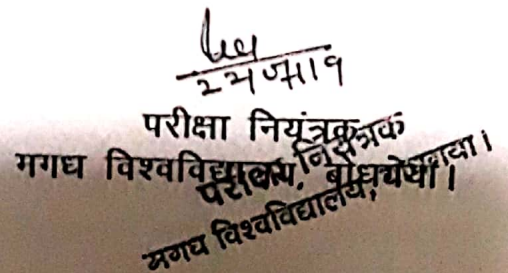 परीक्षा नियंत्रक
मगध विश्वविद्यालय, बोधगया।
परीक्षा नियंत्रक
मगध विश्वविद्यालय, बोधगया।